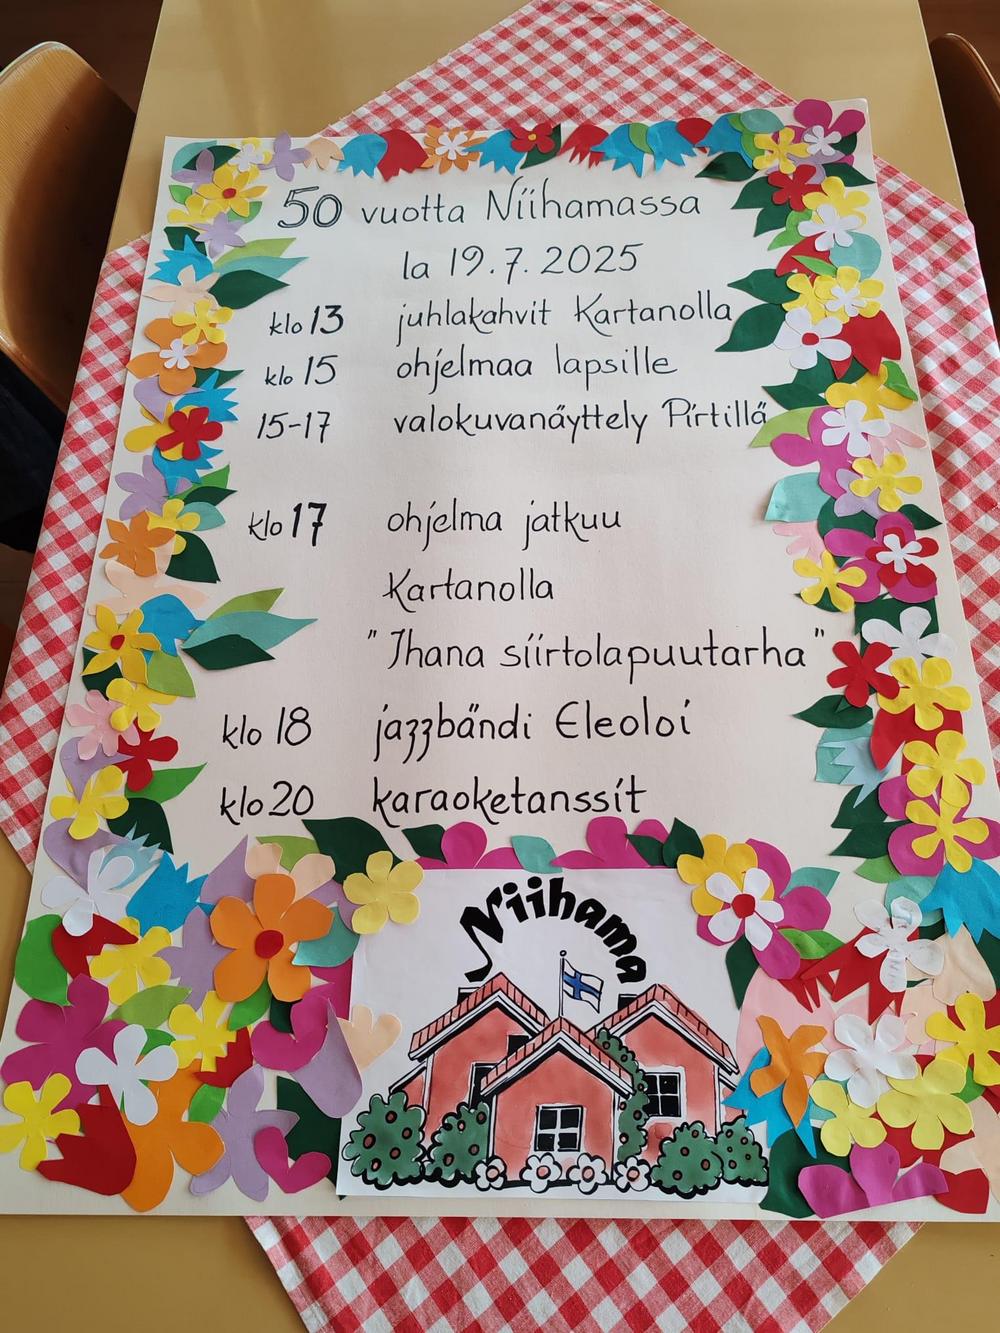 50 vuotta Niihamassa
la 19.7.2025
klo 13 juhlakahvit Kartanolla
klo 15 ohjelmaa lapsille
15-17 valokuvanäyttely Pirtillä
klo 17 ohjelma jatkuu
Kartanolla
"Ihana siirtolapuutarha"
klo 18 jazzbändi Eleoloi
klo 20 karaoketanssit
Niihama